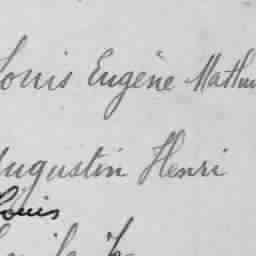 Louis Eugène
Augustin Henri
Louis